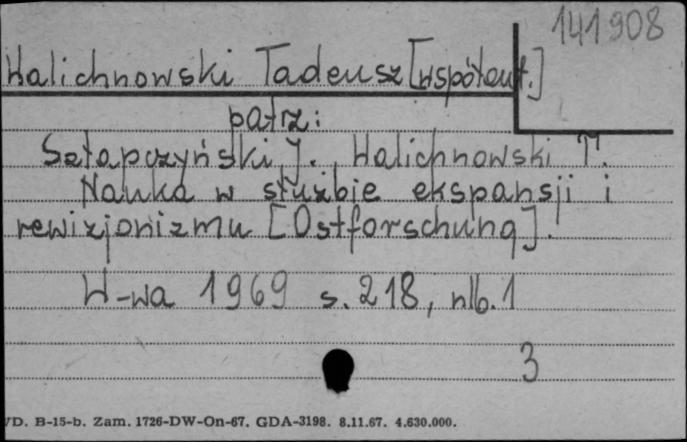 141908
Walichnowski Tadeusz [współaut.]
patrz:
Szłapczyński J., Walichnowski T.
Nauka w służbie ekspansji i
rewizjonizmu [Ostforschung].
W-wa 1969 s. 218, nlb. 1
3
D. B-15-b. Zam. 1726-DW-On-67. GDA-3198. 8.11.67. 4.630.000.